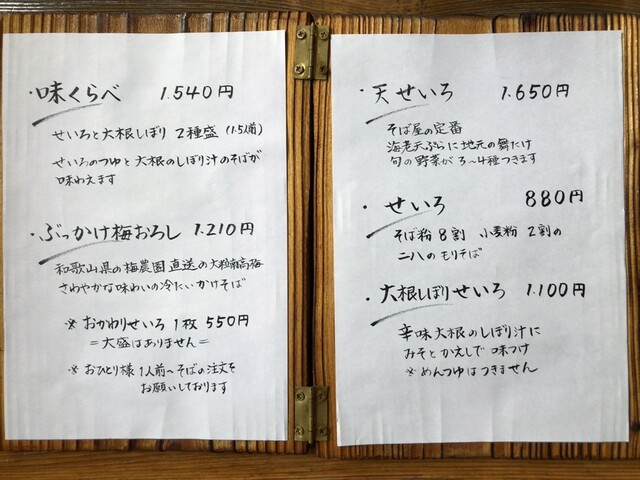 ・味くらべ 1.540円
せいろと大根しぼり 2種盛(1.5人前)
せいろのつゆと大根のしぼり汁のそばが
味わえます
・ぶっかけ梅おろし 1.210円
和歌山県の梅農園直送の大粒南高梅
さわやかな味わいの冷たいかけそば
※おかわりせいろ1枚 550円
=大盛はありません=
※おひとり様1人前〜そばの注文を
お願いしております
・天せいろ 1.650円
そば屋の定番
海老天ぷらに地元の舞たけ
旬の野菜が3〜4種つきます
・せいろ 880円
そば粉8割 小麦粉2割の
二八のもりそば
・大根しぼりせいろ 1.100円
辛味大根のしぼり汁に
みそとかえしで味つけ
※めんつゆはつきません